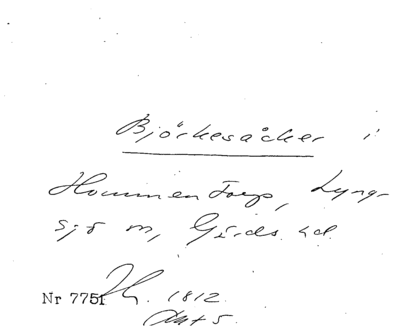 Björkesåcker i
Hommentorp, Lyng-
sjö m, Gärds hd.
Nr 7751 Jh. 1812
Akt 5.